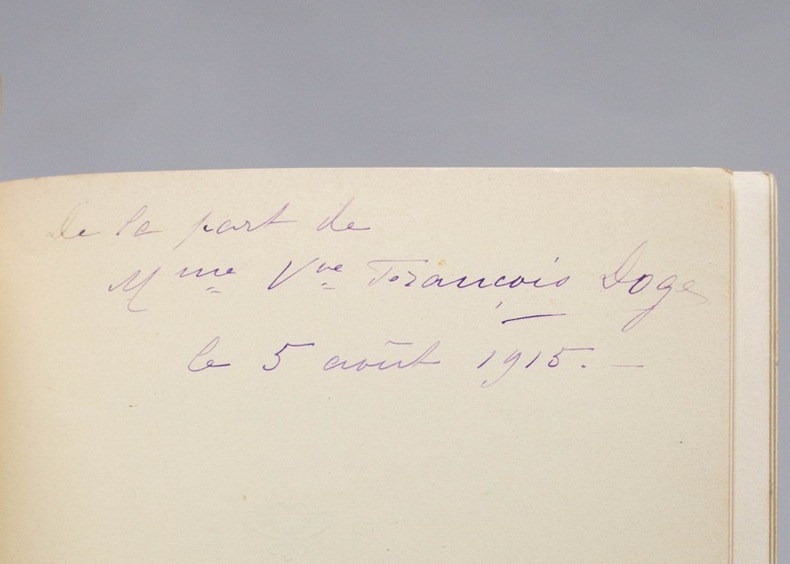 De la part de
Mme Vve François Doge
le 5 août 1915. —